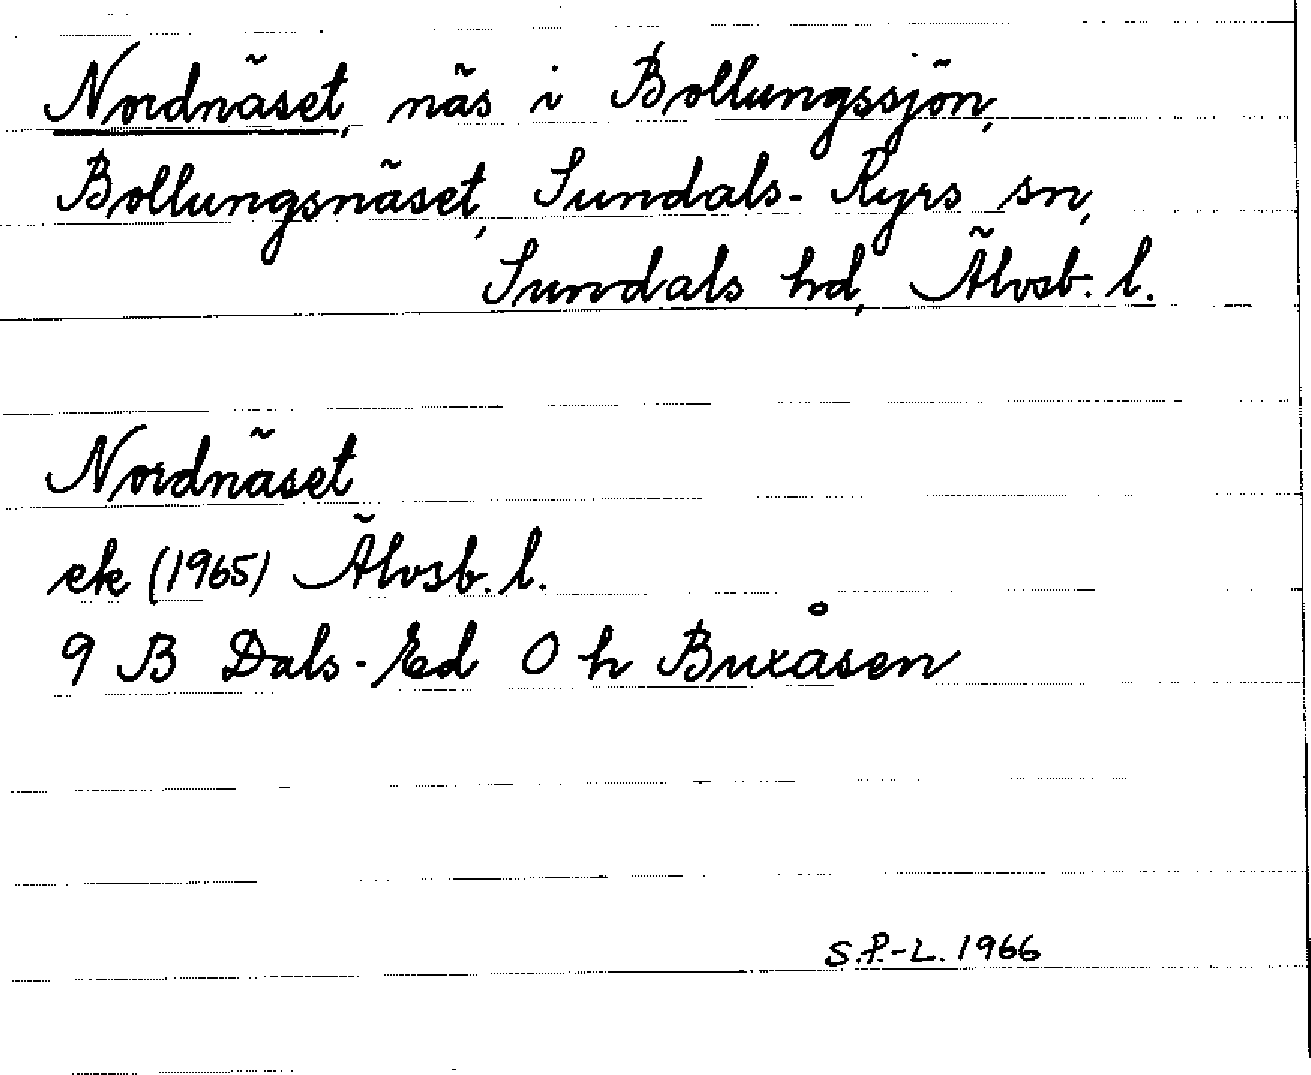 Nordnäset, näs i Bollungssjön,
Bollungsnäset, Sundals-Ryrs sn,
Sundals hd, Älvsb. l.
Nordnäset
ek (1965) Älvsb. l.
9 B Dals-Ed O h Buxåsen
S.P.-L. 1966